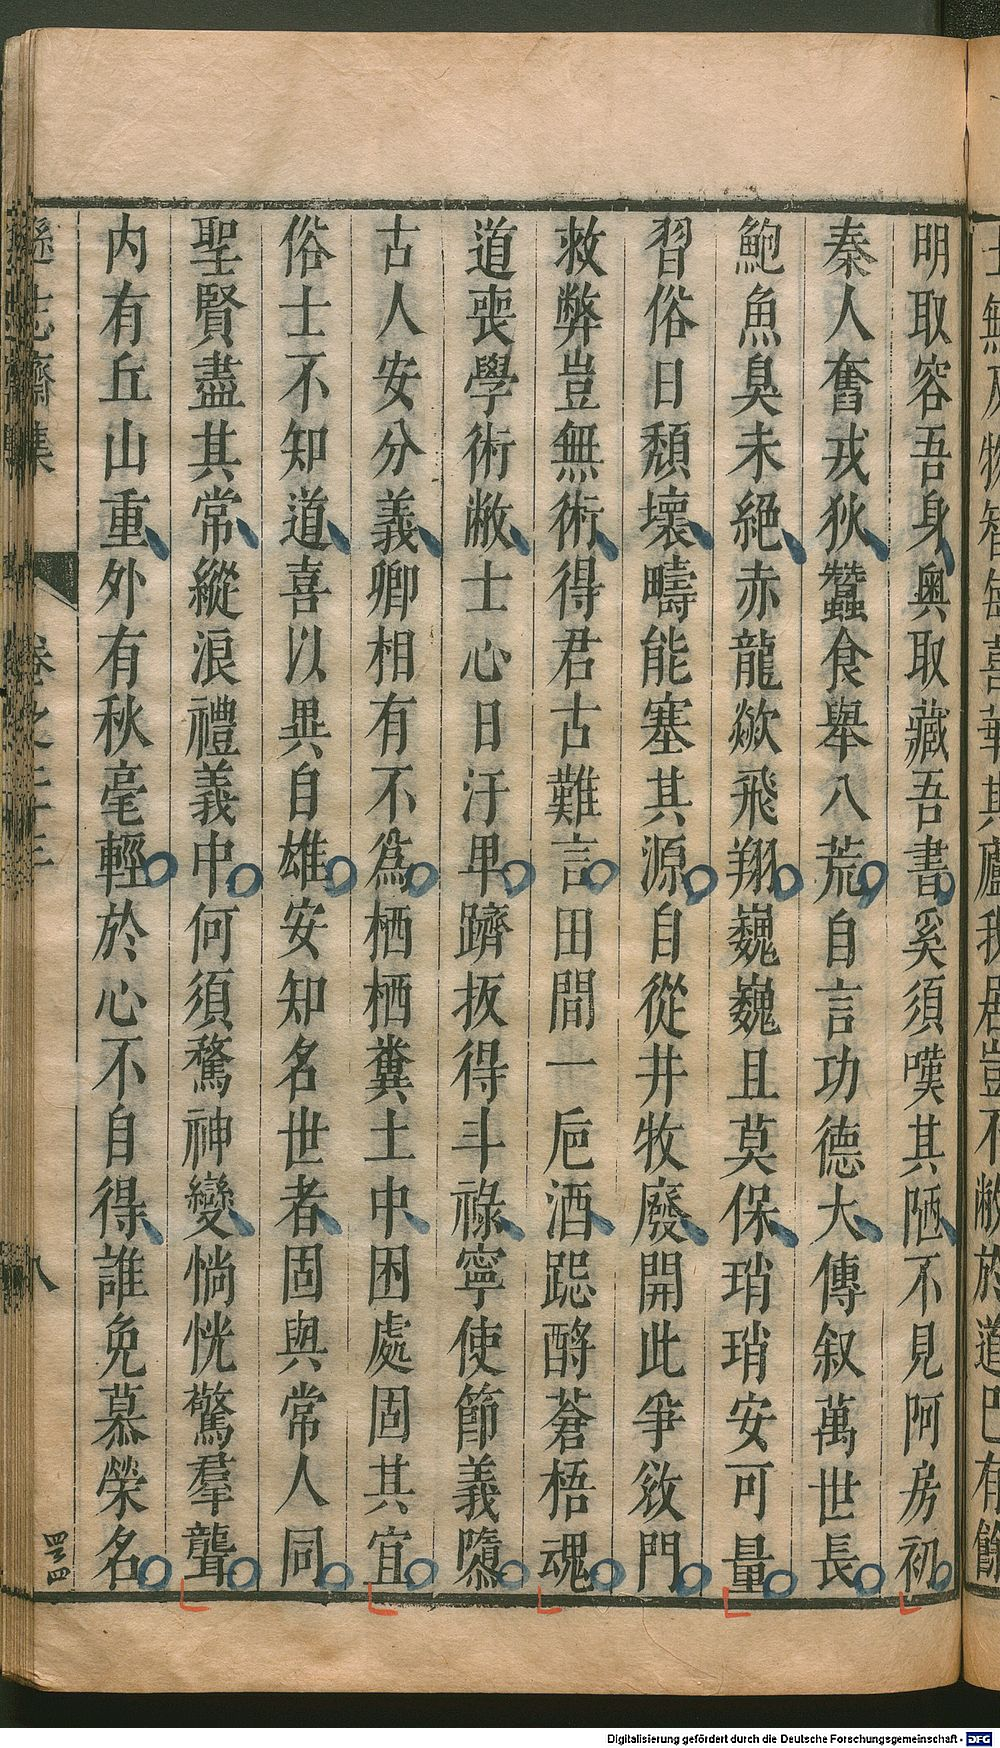 明取容吾身奧取藏吾書奚須嘆其陋不見阿房初
秦人奮戎狄蠶食舉八荒自言功德大傳叙萬世長
鮑魚臭未絕赤龍歘飛翔巍巍且莫保瑣瑣安可量
習俗日頹壞疇能塞其源自從井牧廢開此爭敓門
救弊豈無術得君古難言田間一巵酒跽酹蒼梧魂
道喪學術敝士心日汙卑躋扳得斗祿寧使節義隳
古人安分義卿相有不爲栖栖糞土中困處固其宜
俗士不知道喜以異自雄安知名世者固與常人同
聖賢盡其常縱浪禮義中何須騖神變惝恍驚羣聾
内有丘山重外有秋毫輕於心不自得誰免慕榮名
遜志齋集 卷之二十三 八
Digitalisierung gefördert durch die Deutsche Forschungsgemeinschaft - DFG